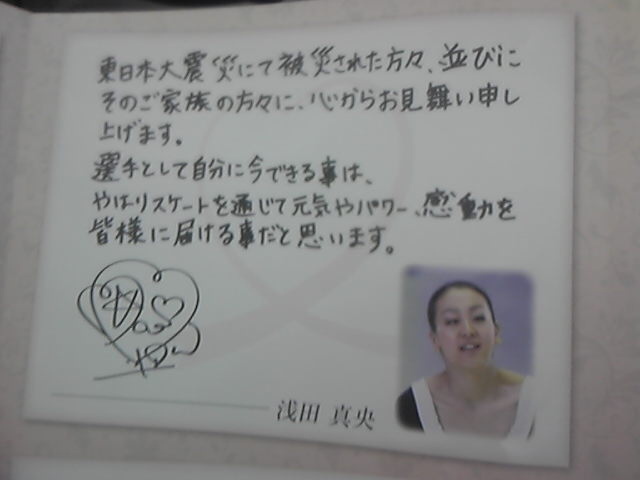 東日本大震災にて被災された方々、並びに
そのご家族の方々に、心からお見舞い申し
上げます。
選手として自分に今できる事は、
やはりスケートを通じて元気やパワー、感動を
皆様に届ける事だと思います。
浅田 真央